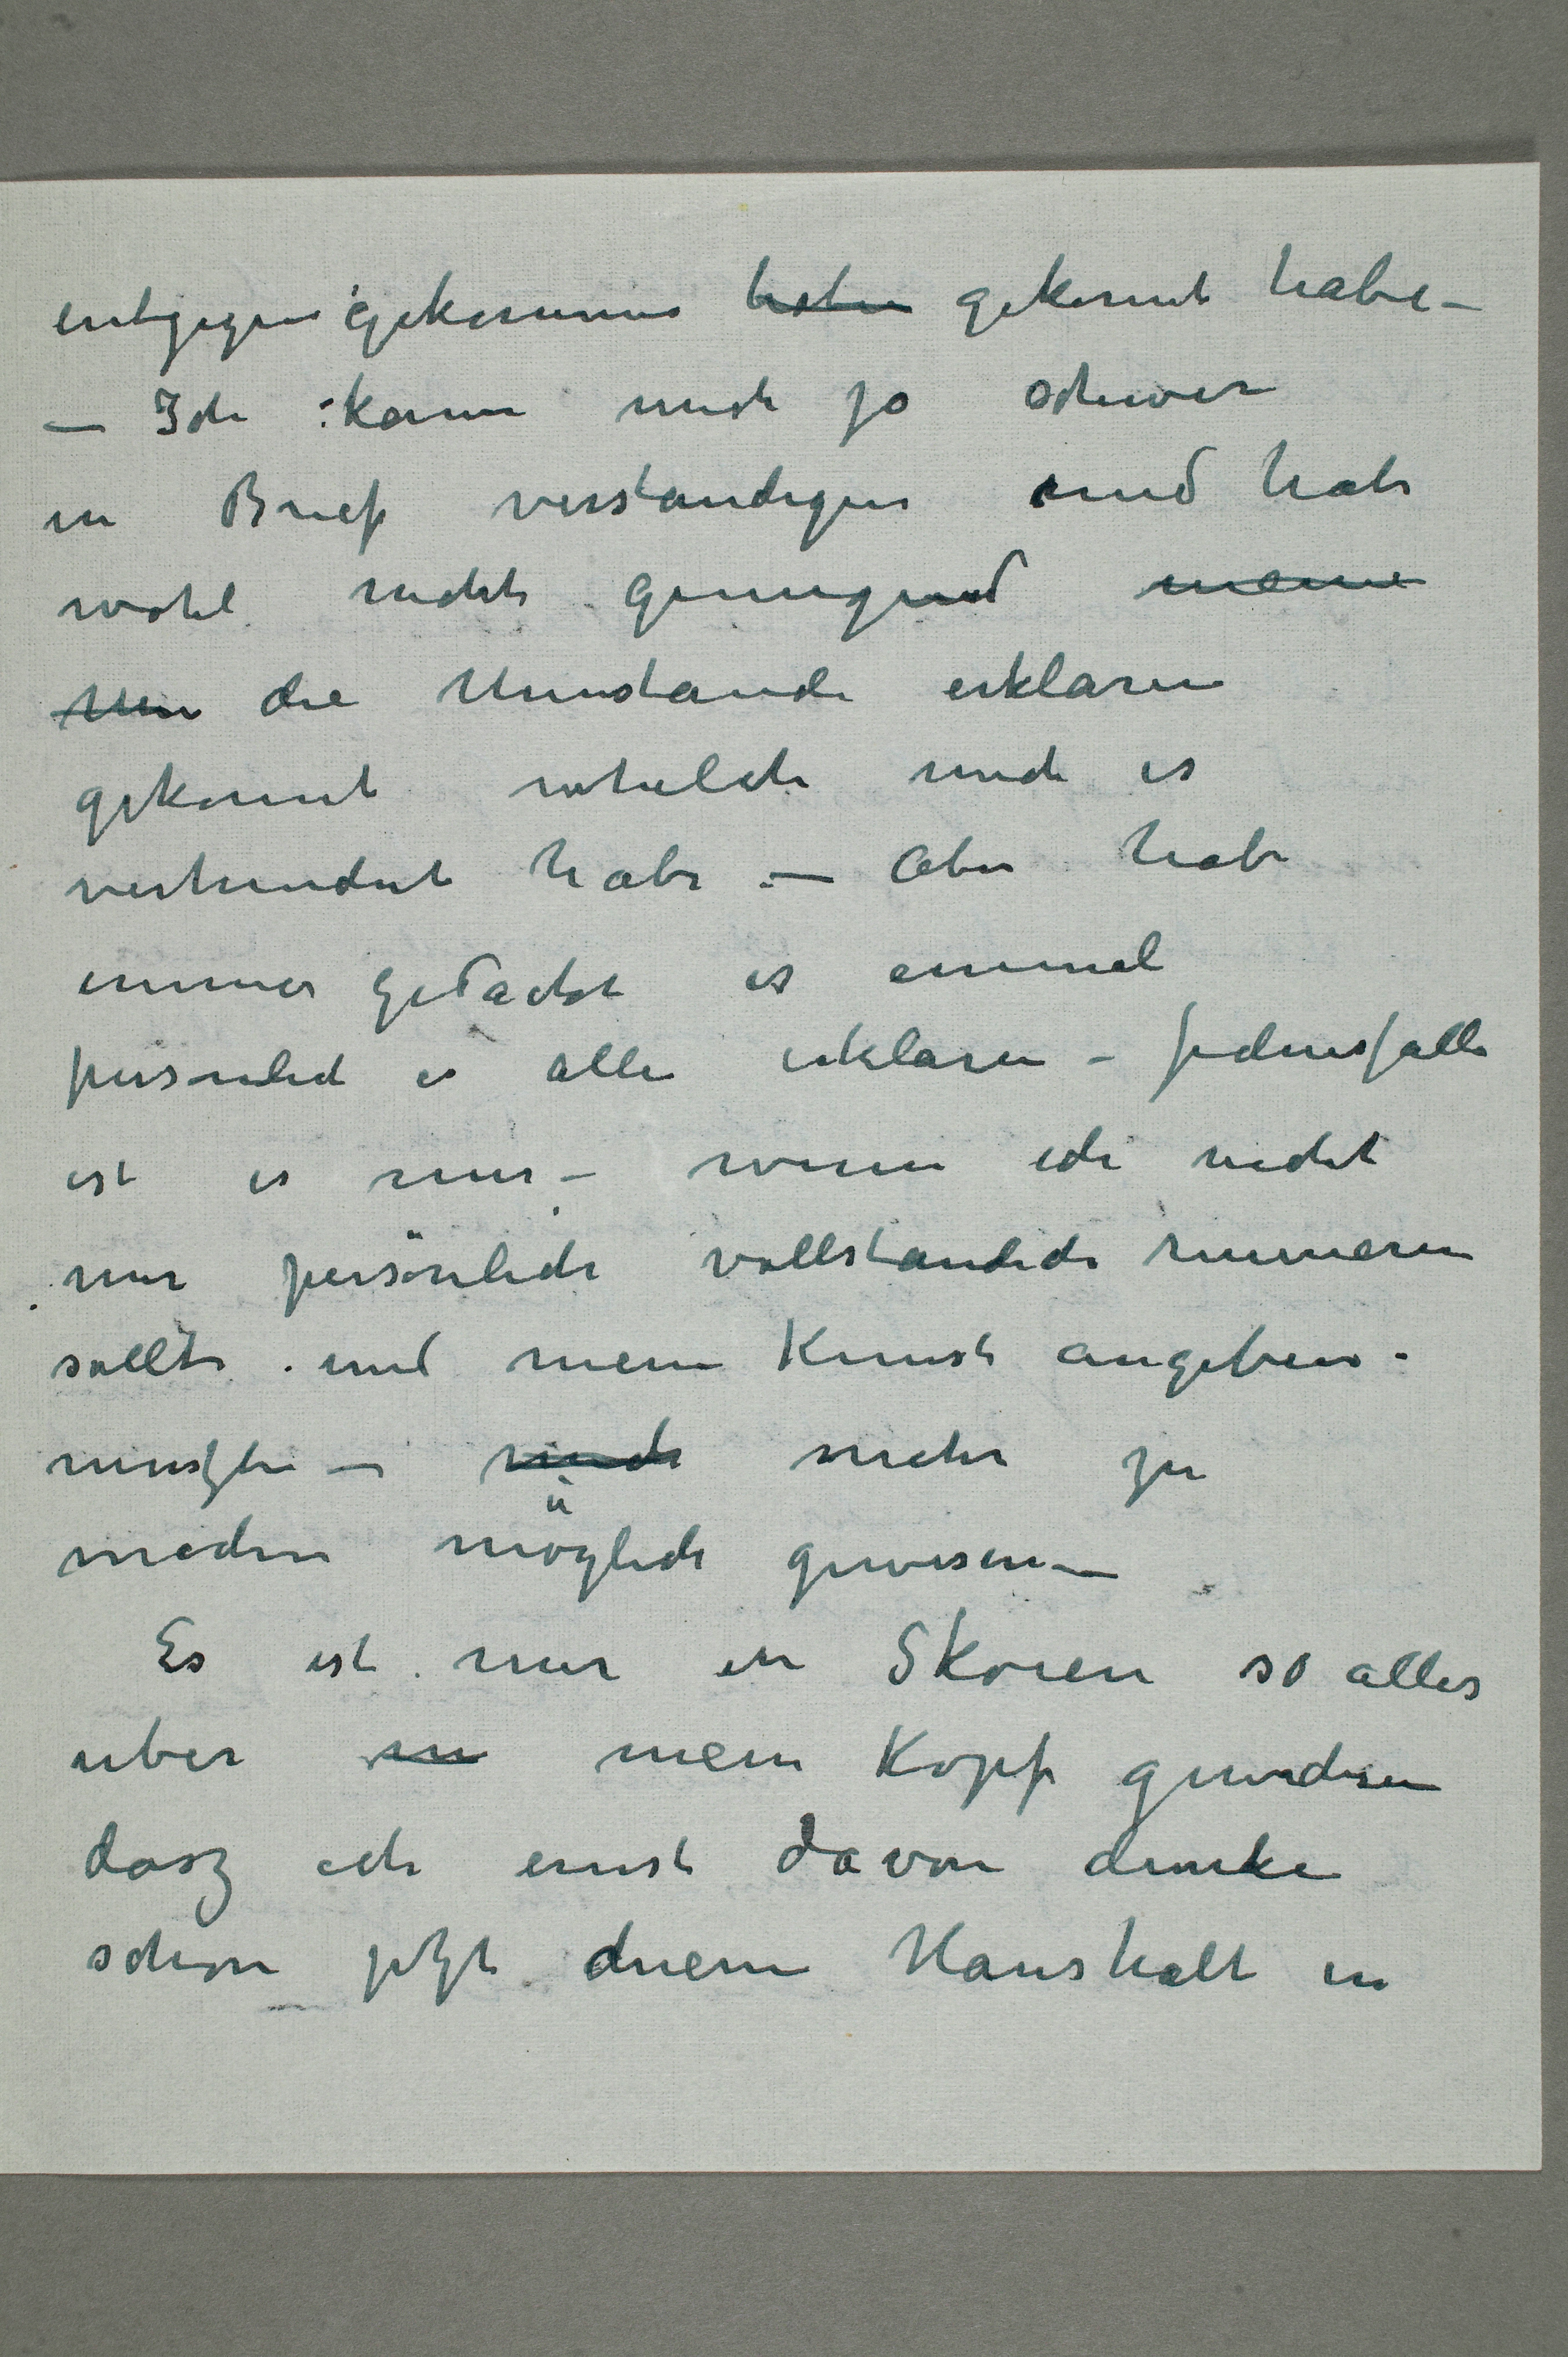 entgegengekommen haben gekonnt habe –
– Ich kann mich ja schwer
in Brief verständigen und habe
wohl nicht genugend meine
Um die Umstande erklaren
gekonnt whelche mich es
verhindert habe – Aber habe
immer gedacht es einmal
persönlich es alle erklaren – Jedensfalls
ist es mir – wenn ich nicht
mir persönlich vollstandich ruinieren
sollte und meine Kunst angeben
muszte – nicht mehr zu
machen möglich gewesen –
Es ist mir in Skoien so alles
uber m mein Kopf gewachsen
dasz ich ernst davon denke
schon jetzt dieem Haushalt in